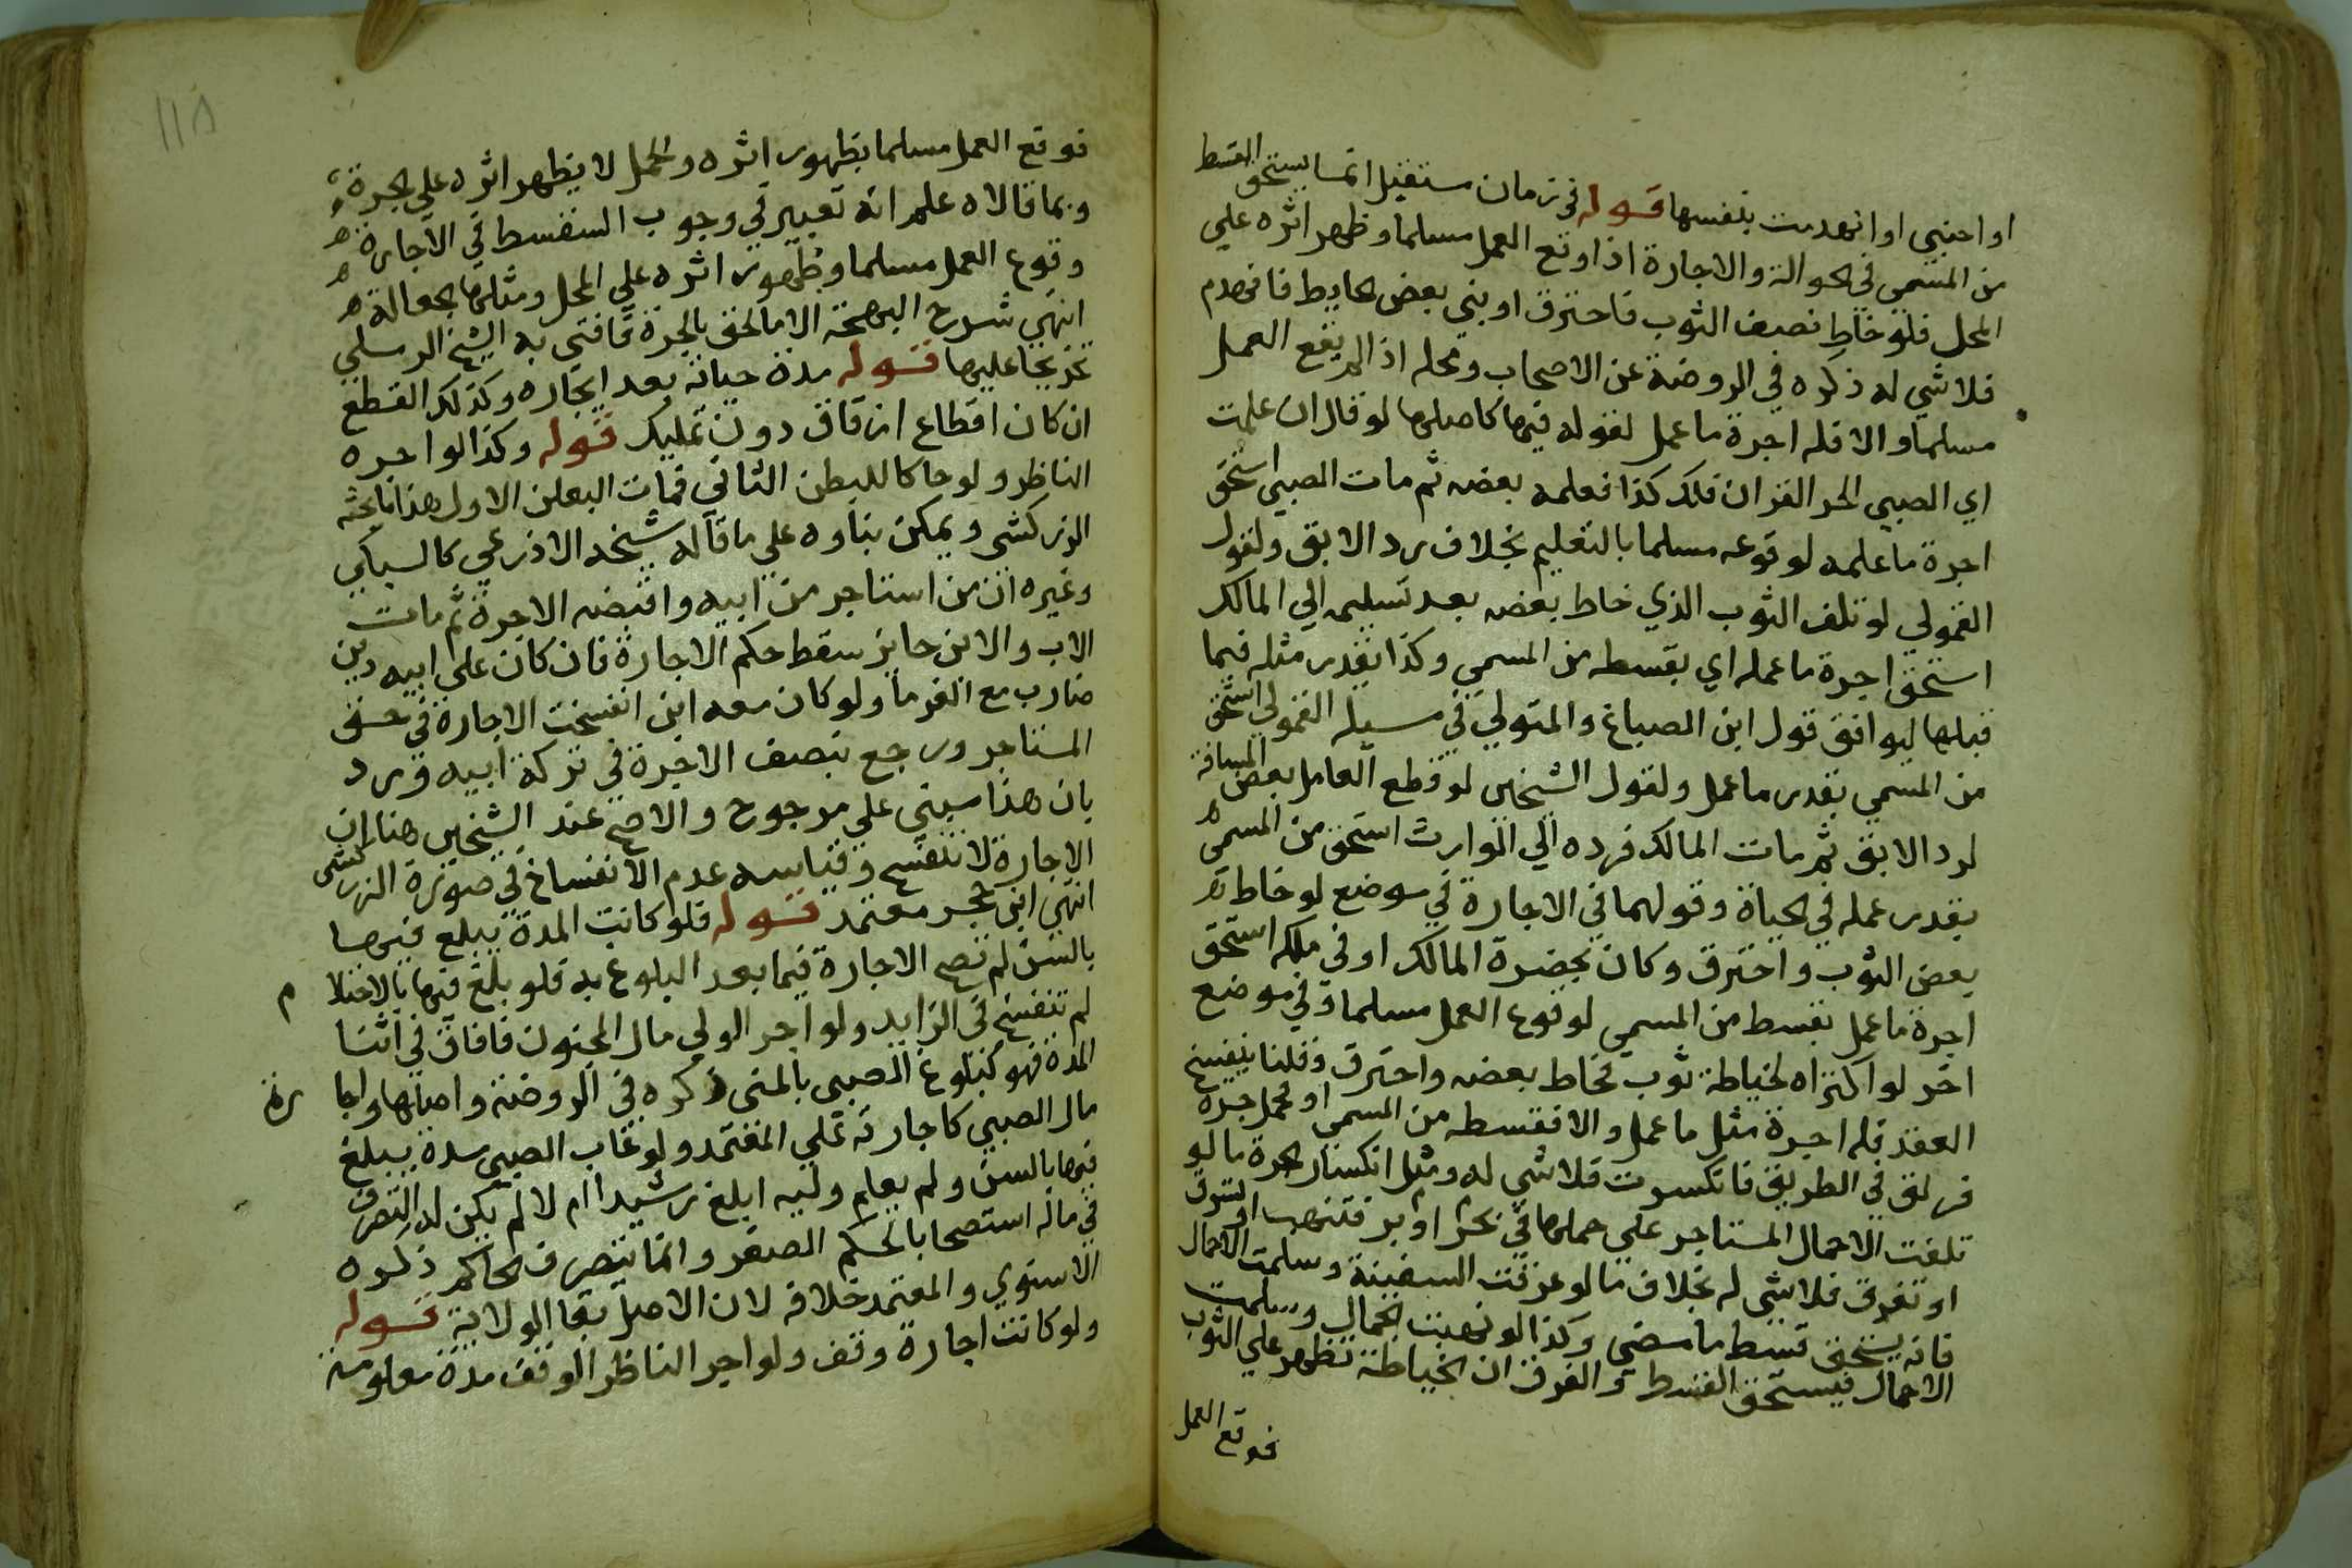 او اجنبي او انهدمت بنفسها قوله في زمان مستقبل انما يستحق القسط
من المسمى في الجوالة والاجارة اذا وقع العمل مسلما وظهر اثره علي
المحل فلو خاط نصف الثوب فاحترق او بني بعض الحايط فانهدم
فلا شي له ذكره في الروضة عن الاصحاب ومحله اذا لم يقع العمل
مسلما والا فله اجرة ما عمل لقوله فيها كاصلها لو قال ان علمت
اي الصبي الحر القران فلك كذا فعلمه بعضه ثم مات الصبي استحق
اجرة ما علمه لوقوعه مسلما بالتعليم بخلاف رد الابق ولقول
القمولي لو تلف الثوب الذي خاط بعضه بعد تسليمه الي المالك
استحق اجرة ما عمله اي بقسطه من المسمي وكذا يقدر مثله فيما
قبلها ليوافق قول ابن الصباغ والمتولي في مسيلة القمولي استحق
من المسمي بقدر ما عمل ولقول الشيخين لو قطع العامل بعض المسافة
لرد الابق ثم مات المالك فرده الي الوارث استحق من المسمى
بقدر عمله في الحياة وقولهما في الاجارة في موضع لو خاط
بعض الثوب واحترق وكان بحضرة المالك او في ملكه استحق
اجرة ما عمل بقسط من المسمي لوقوع العمل مسلما وفي موضع
اخر لو اكتراه لخياطة ثوب فخاط بعضه واحترق وقلنا ينفسخ
العقد فله اجرة مثل ما عمل والا فقسطه من المسمي او لحمل جرة
فزلق في الطريق فانكسرت فلا شي له ومثل انكسار الجرة ما لو
تلفت الاحمال المستاجر علي حملها في بحر او بر فتنهب او تسرق
او تغرق فلا شي له بخلاف ما لو غرقت السفينة وسلمت الاحمال
فانه يستحق قسط ما مضي وكذا لو نهبت الجمال وسلمت
الاحمال فيستحق القسط والفرق ان الخياطة تظهر علي الثوب
فوقع العمل
١١٨
فوقع العمل مسلما بظهور اثره والحمل لا يظهر اثره علي الجرة
وبما قالاه علم انه تعبير في وجوب القسط في الاجارة
وقوع العمل مسلما وظهور اثره علي المحل ومثلها الجعالة
انتهي شرح البهجة الا ما لحق بالجرة فافتي به الشيخ الرملي
تخريجا عليها قوله مدة حياته بعد ايجاره وكذلك القطع
ان كان اقطاع ارقاق دون تمليك قوله وكذا لو اجره
الناظر ولو حاكما للبطن الثاني فمات البطن الاول هذا ما بحثه
الزركشي ويمكن بناوه علي ما قاله شيخه الاذرعي كالسبكي
وغيره ان من استاجر من ابيه واقبضه الاجرة ثم مات
الاب والابن حايز سقط حكم الاجارة فان كان علي ابيه دين
ضارب مع الغرما ولو كان معه ابن انفسخت الاجارة في حق
المستاجر ورجع بنصف الاجرة في تركة ابيه ورد
بان هذا مبني علي مرجوح والاصح عند الشيخين هنا ان
الاجارة لا تنفسخ وقياسه عدم الانفساخ في صورة الزركشي
انتهي ابن حجر معتمد قوله فلو كانت المدة يبلغ فيها
بالسن لم تصح الاجارة فيما بعد البلوغ به فلو بلغ فيها بالاحتلام
لم تنفسخ في الزايد ولو اجر الولي مال المجنون فافاق في اثنا
المدة فهو كبلوغ الصبي بالمني ذكره في الروضة واصلها واجارة
مال الصبي كاجارته علي المعتمد ولو غاب الصبي مدة يبلغ
فيها بالسن ولم يعلم وليه ابلغ رشيدا ام لا لم يكن له التصرف
في ماله استصحابا لحكم الصغر وانما يتصرف الحاكم ذكره
الاسنوي والمعتمد خلافه لان الاصل بقا الولاية قوله
ولو كانت اجارة وقف ولو اجر الناظر الوقف مدة معلومة